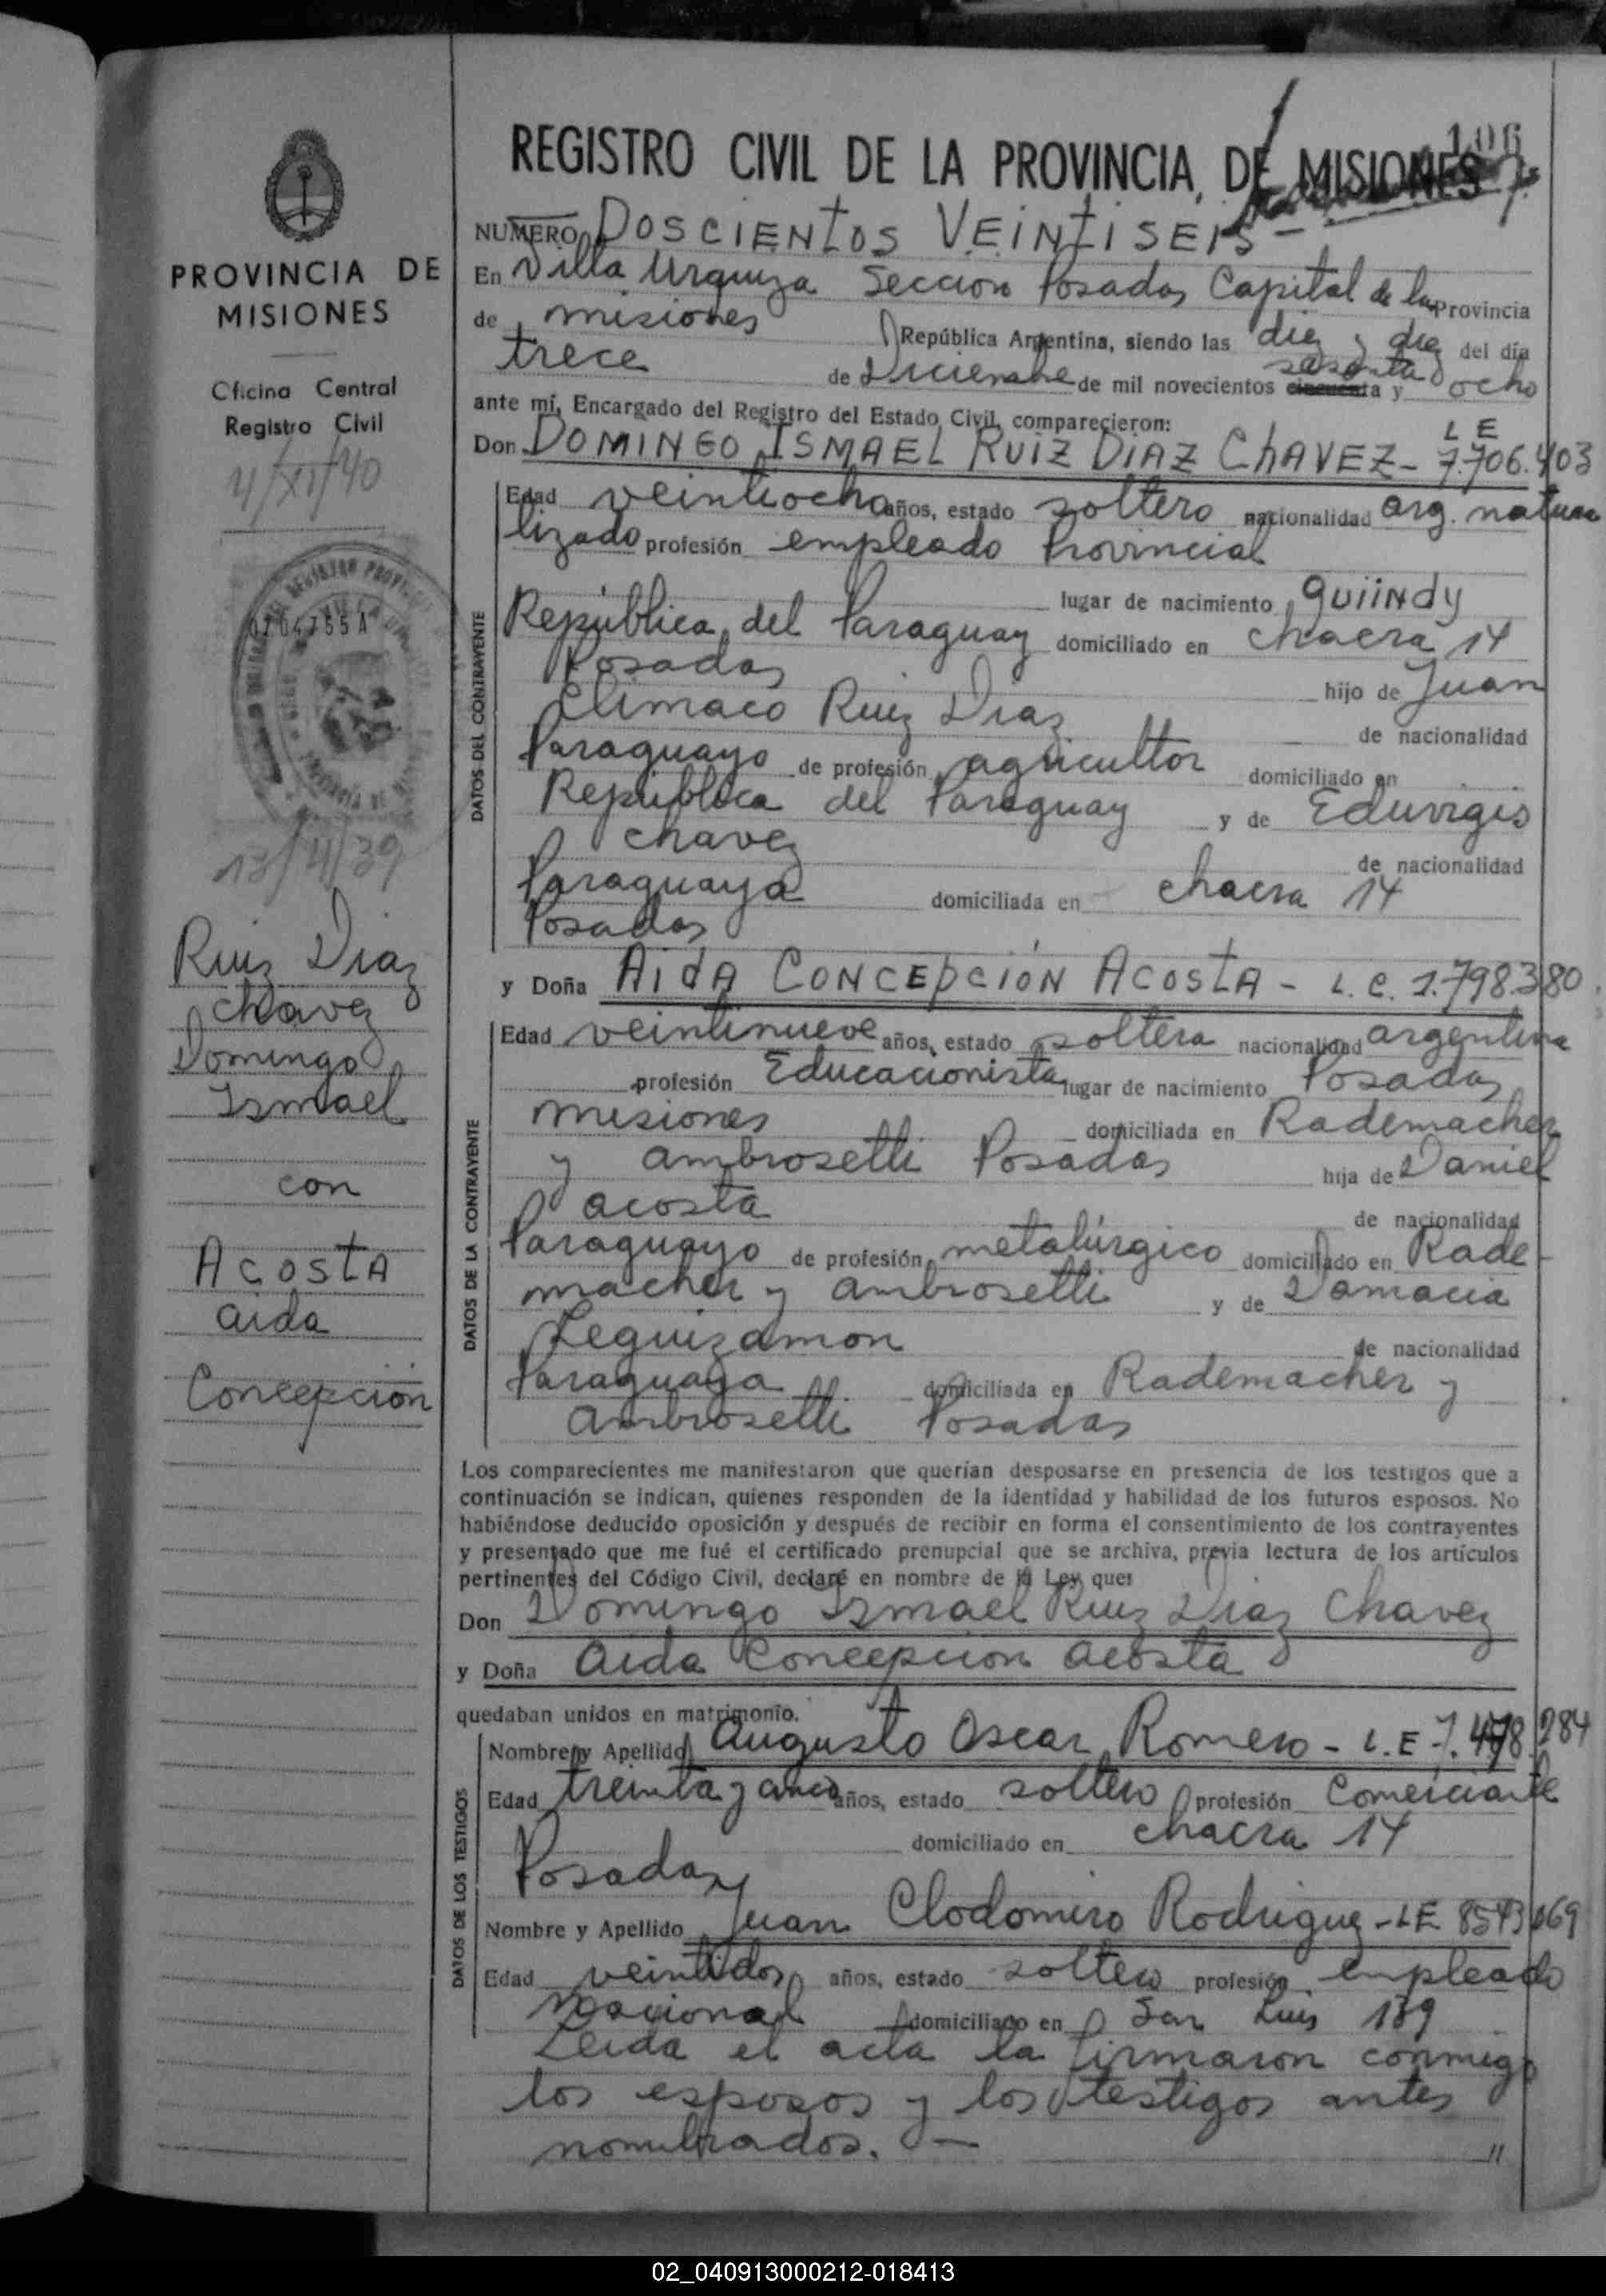 PROVINCIA DE
MISIONES
Oficina Central
Registro Civil
4/XI/40
0704755 A
13/4/39
Ruiz Diaz
Chavez
Domingo
Ismael
con
Acosta
Aida
Concepción
106
REGISTRO CIVIL DE LA PROVINCIA DE MISIONES
NUMERO DOSCIENTOS VEINTISEIS -
En Villa Urquiza Sección Posadas Capital de la Provincia
de misiones República Argentina, siendo las diez y diez del día
trece de Diciembre de mil novecientos cincuenta sesenta y ocho
ante mí, Encargado del Registro del Estado Civil, comparecieron:
Don DOMINGO ISMAEL RUIZ DIAZ CHAVEZ - L E 7.706.403
DATOS DEL CONTRAYENTE
Edad veintiocho años, estado soltero nacionalidad arg. natura
lizado profesión empleado Provincial
lugar de nacimiento Quiindy
República del Paraguay domiciliado en chacra 14
Posadas hijo de Juan
Climaco Ruiz Diaz de nacionalidad
Paraguayo de profesión agricultor domiciliado en
República del Paraguay y de Eduvigis
Chavez de nacionalidad
Paraguaya domiciliada en chacra 14
Posadas
y Doña AIDA CONCEPCIÓN ACOSTA - L. C. 1.798.380
DATOS DE LA CONTRAYENTE
Edad veintinueve años, estado soltera nacionalidad argentina
profesión Educacionista lugar de nacimiento Posadas
misiones domiciliada en Rademacher
y ambrosetti Posadas hija de Daniel
acosta de nacionalidad
Paraguayo de profesión metalúrgico domiciliado en Rade-
macher y ambrosetti y de Damacia
Leguizamon de nacionalidad
Paraguaya domiciliada en Rademacher y
ambrosetti Posadas
Los comparecientes me manifestaron que querían desposarse en presencia de los testigos que a
continuación se indican, quienes responden de la identidad y habilidad de los futuros esposos. No
habiéndose deducido oposición y después de recibir en forma el consentimiento de los contrayentes
y presentado que me fué el certificado prenupcial que se archiva, previa lectura de los artículos
pertinentes del Código Civil, declaré en nombre de la Ley que:
Don Domingo Ismael Ruiz Diaz Chavez
y Doña Aida Concepcion acosta
quedaban unidos en matrimonio.
DATOS DE LOS TESTIGOS
Nombre y Apellido Augusto Oscar Romero - L.E 7.478.284
Edad treinta y cinco años, estado soltero profesión Comerciante
domiciliado en chacra 14
Posadas
Nombre y Apellido Juan Clodomiro Rodriguez - LE 8543069
Edad veintidos años, estado soltero profesión empleado
nacional domiciliado en San Luis 139
Leida el acta la firmaron conmigo
los esposos y los testigos antes
nombrados. —
02_040913000212-018413